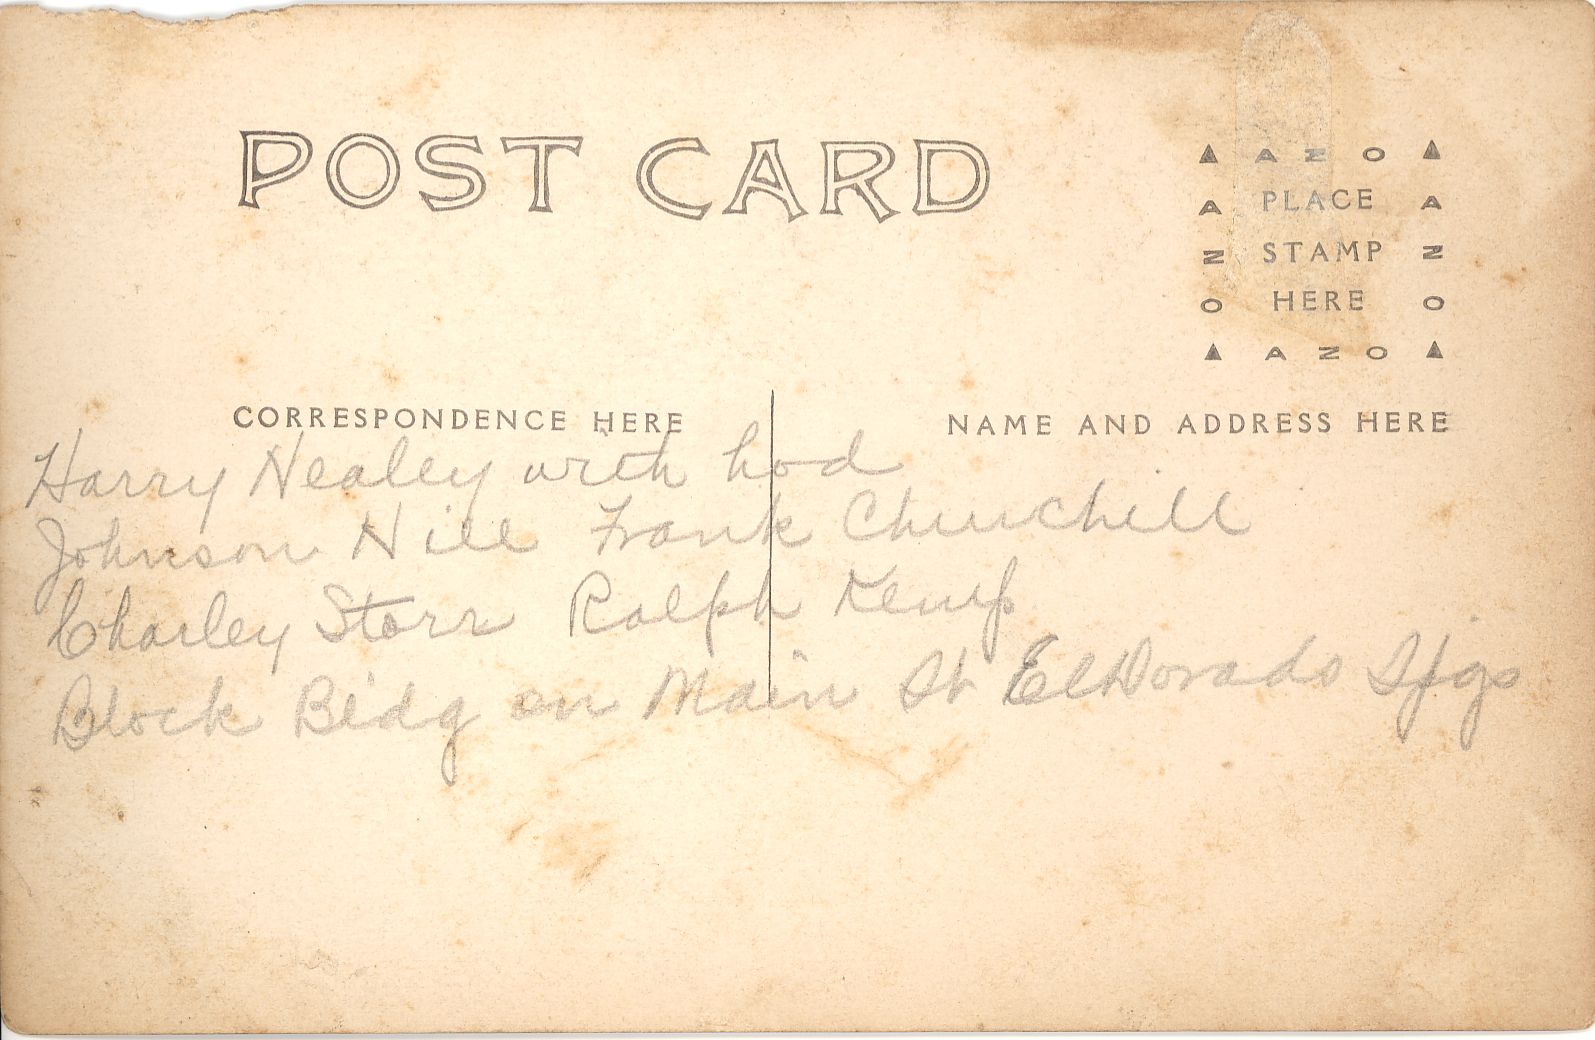 POST CARD
▲ AZO ▲
AZO
PLACE
STAMP
HERE
AZO
▲ AZO ▲
CORRESPONDENCE HERE
NAME AND ADDRESS HERE
Harry Nealey with hod
Johnson Hill Frank Churchill
Charley Starr Ralph Kemp
Block Bldg on Main St ElDorado Spgs